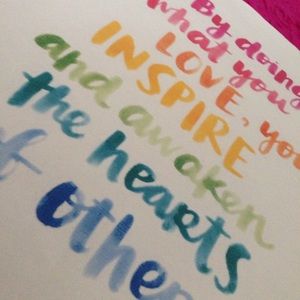 By doing
what you
LOVE, you
INSPIRE
and awaken
the hearts
of others